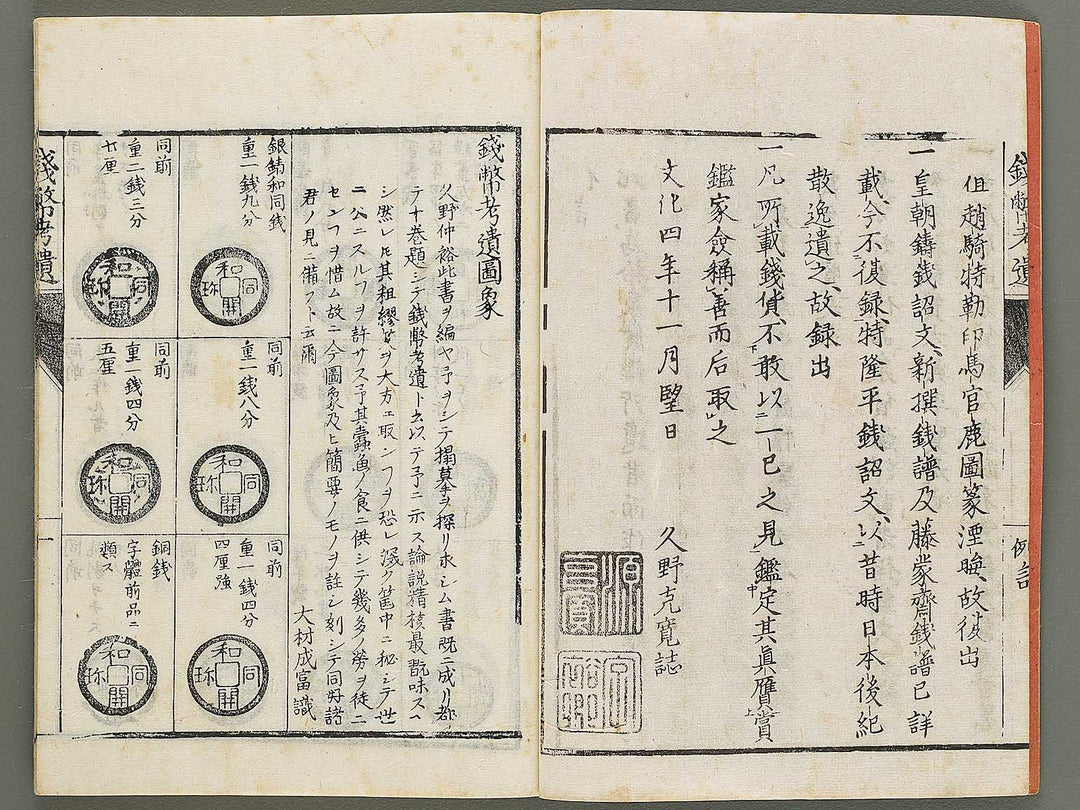 錢幣考遺
例言
但趙騎特勒印馬官鹿圖篆湮晦故復出
一皇朝鑄錢詔文新撰錢譜及藤蒙齋錢譜已詳
載今不復録特隆平錢詔文以昔時日本後紀
散逸遺之故録出
一凡所載錢貨不敢以一己之見鑑定其眞贋賞
鑑家僉稱善而后取之
文化四年十一月望日
久野克寬誌
錢幣考遺圖象
久野仲裕此書ヲ編ヤ予ヲシテ搨摹ヲ探リ求シム書既ニ成リ都
テ十巻題シテ錢幣考遺ト云以テ予ニ示ス論説精核最翫味スヘ
シ然レ𪜈其粗繆ヲ大方ニ取ンヿヲ恐レ深ク筐中ニ秘シテ世
ニ公ニスルヿヲ許サス予其蠹魚ノ食ニ供シテ幾多ノ勞ヲ徒ニ
センヿヲ惜ム故ニ今圖象及ヒ簡要ノモノヲ註シ刻シテ同好諸
君ノ見ニ備フト云爾
大村成富識
銀鑄和同錢
重一錢九分
和同開珎
同前
重一錢八分
和同開珎
同前
重一錢四分
四厘強
和同開珎
同前
重二錢三分
七厘
和同開珎
同前
重一錢四分
五厘
和同開珎
銅錢
字體前品ニ
類ス
和同開珎
錢幣考遺
一